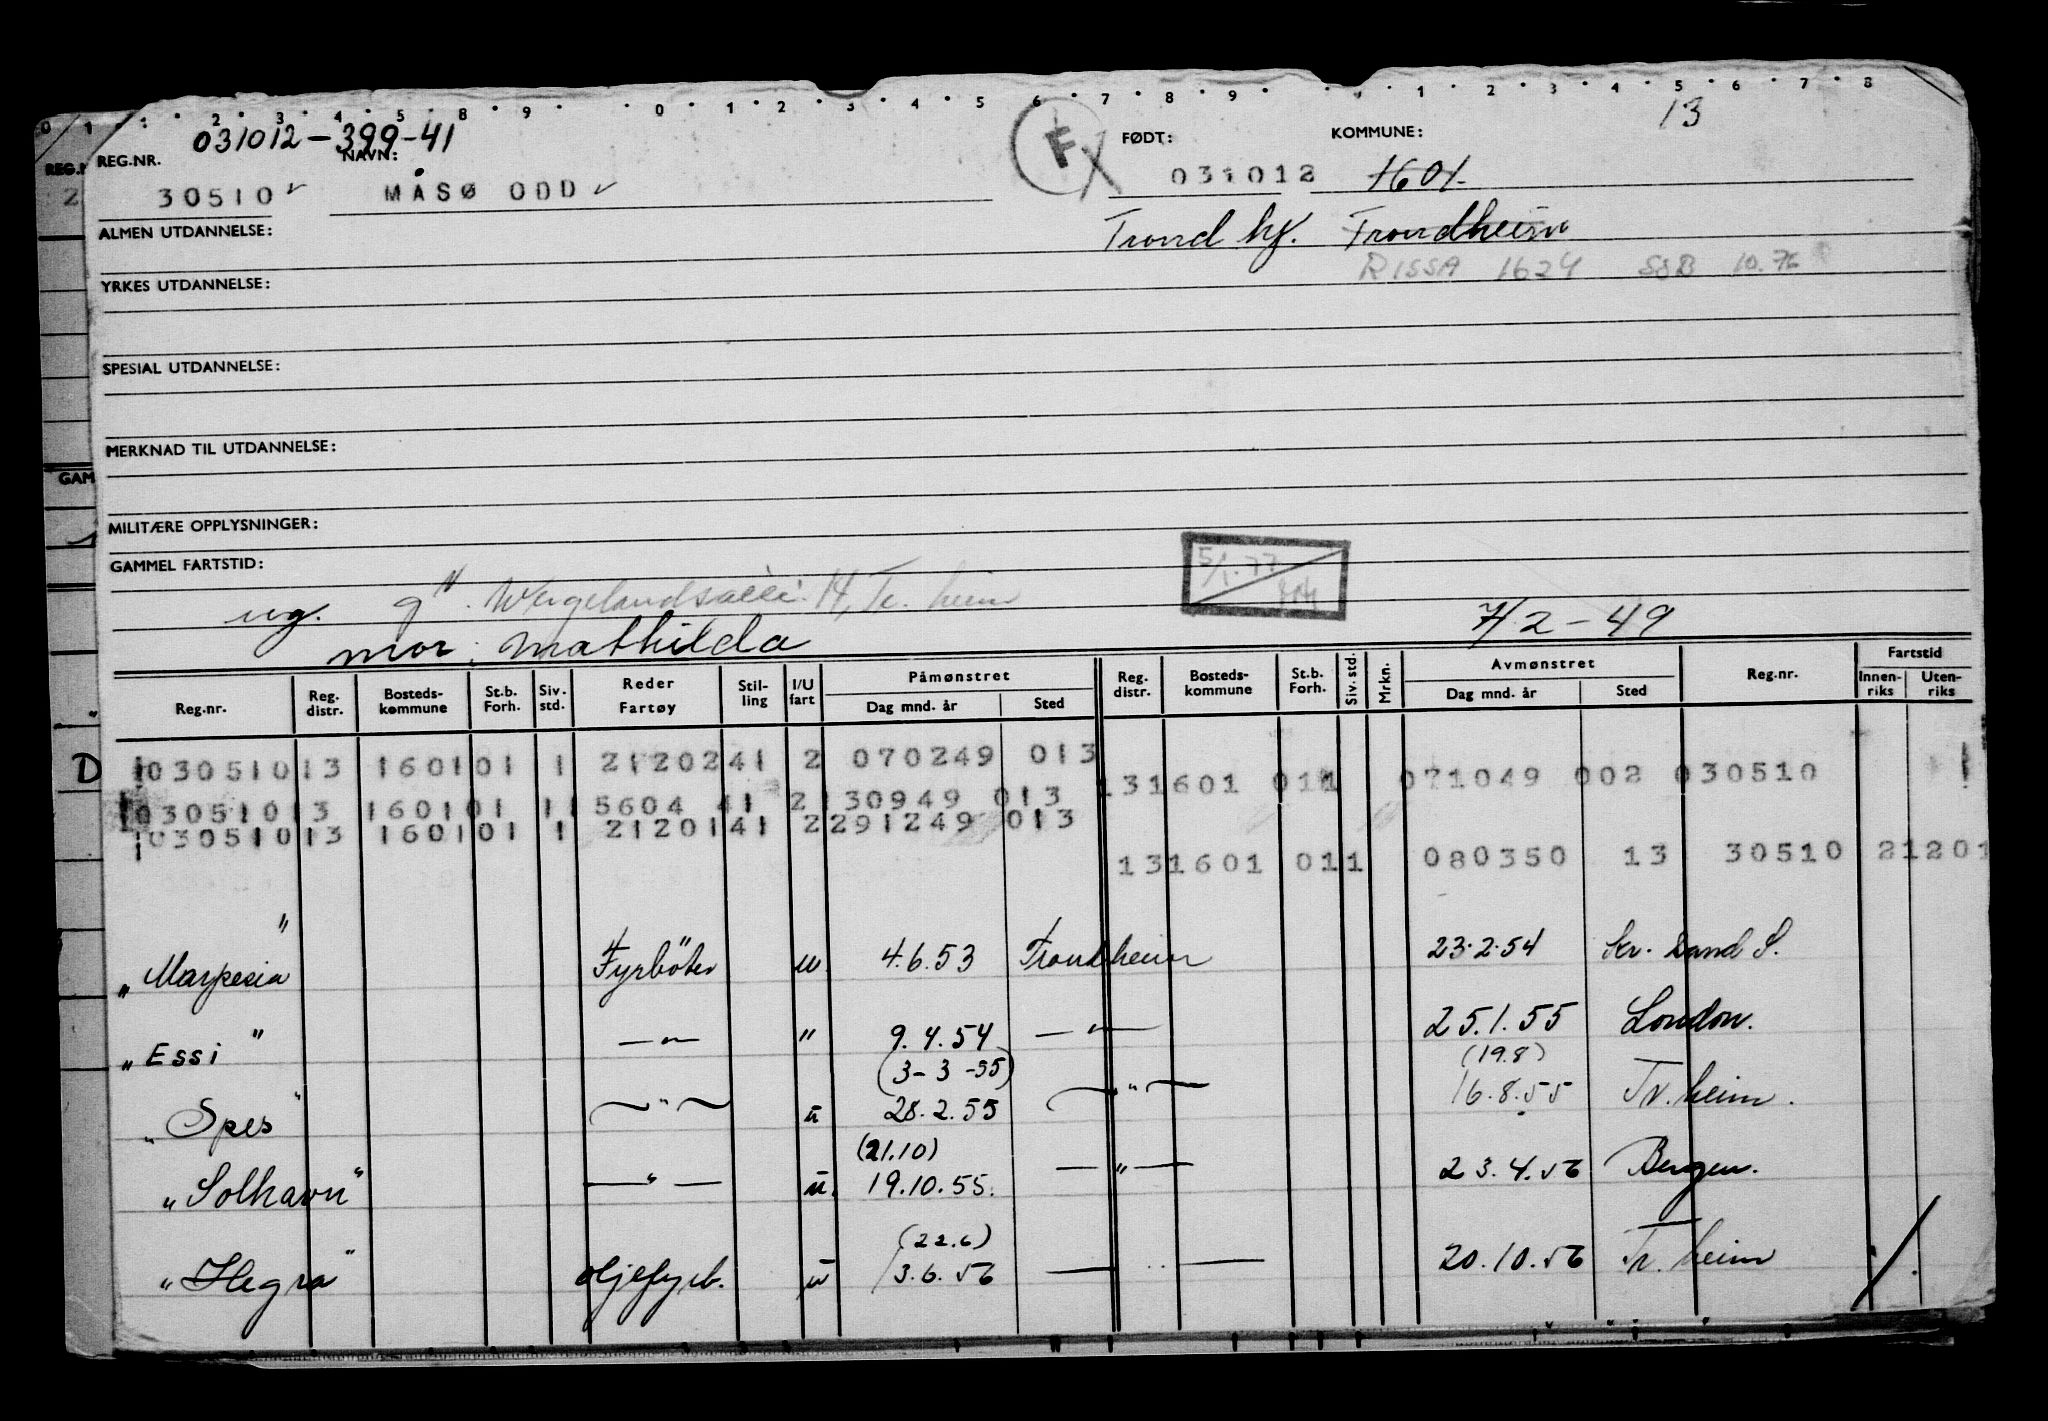 0 1 2 3 4 5 8 9 0 1 2 3 4 5 6 7 8 9 1 2 3 4 5 6 7 8
13
REG.NR. 031012-399-41 NAVN: F X FØDT: KOMMUNE:
30510 ✓ MÅSØ ODD ✓ 031012 1601
ALMEN UTDANNELSE: Trond hj. Trondheim
RISSA 1624 SSB 10.76
YRKES UTDANNELSE:
SPESIAL UTDANNELSE:
MERKNAD TIL UTDANNELSE:
GAM
MILITÆRE OPPLYSNINGER:
GAMMEL FARTSTID:
5/1.77
ug. g". Wergelandsalle 14, Tr. heim
mor: Mathilda 7/2-49
Reg.nr. Reg. distr. Bosteds-kommune St.b. Forh. Siv. std. Reder Fartøy Stil-ling I/U fart Påmønstret Dag mnd. år Sted Reg. distr. Bosteds-kommune St.b. Forh. Siv. std. Mrkn. Avmønstret Dag mnd. år Sted Reg.nr. Fartstid Innen-riks Uten-riks
D
03051013 160101 1 2120241 2 070249 013
131601 011 071049 002 030510 1
03051013 160101 11 5604 41 2130949 013
03051013 160101 1 2120141 2291249 013
131601 011 080350 13 30510 21201
"Marpesia" Fyrböter u. 4.6.53 Trondheim 23.2.54 Kr. Sand S.
"Essi" —"— " 9.4.54 —"— 25.1.55 London.
(3-3-55) (19.8)
"Spes" —"— u 28.2.55 —"— 16.8.55 Tr. heim.
(21.10)
"Solhavn" —"— u. 19.10.55. —"— 23.4.56 Bergen.
(22.6)
"Hegra" oljefyrb. u 13.6.56 —"— 20.10.56 Tr. heim